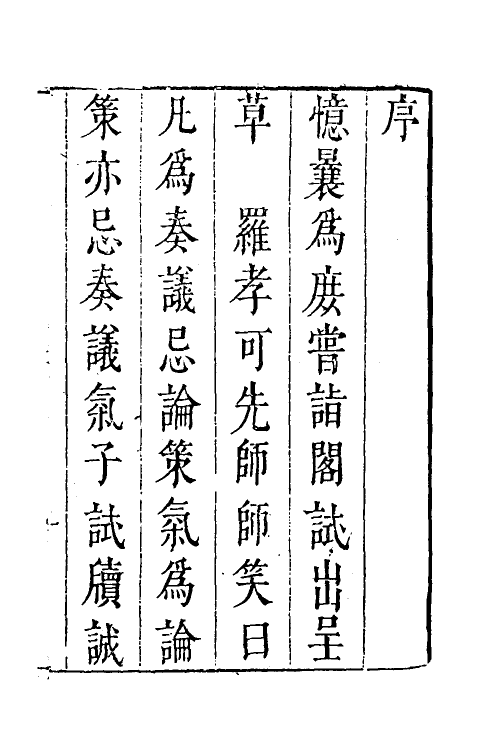 序
憶曩爲庻嘗詣閣試出呈
草　羅孝可先師師笑曰
凡爲奏議忌論策氣爲論
策亦忌奏議氣子試牘誠